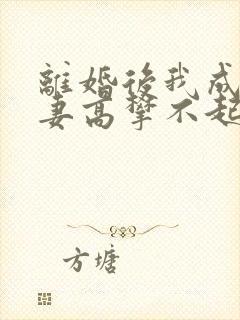 離婚後我成
妻高攀不起
方塘